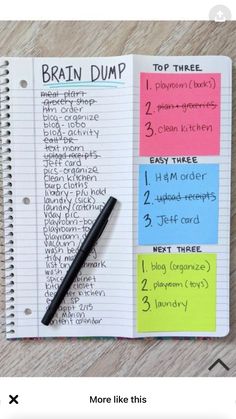 BRAIN DUMP
meal plan
grocery shop
h&m order
blog-organize
blog-1080
blog-activity
call DR
text mom
upload receipts
Jeff card
pics-organize
clean kitchen
burp cloths
library-p/u hold
laundry (sick)
laundry (catchup)
vday pic
playroom-boo
playroom-to
playroom
vacuum
wash be
tidy
list on mark
wash
spice cabinet
closet
kitchen
SP
appt 2/15
content calendar
TOP THREE
1. playroom (books)
2. plan + groceries
3. clean kitchen
EASY THREE
1. H&M order
2. upload receipts
3. Jeff card
NEXT THREE
1. blog (organize)
2. playroom (toys)
3. laundry
More like this